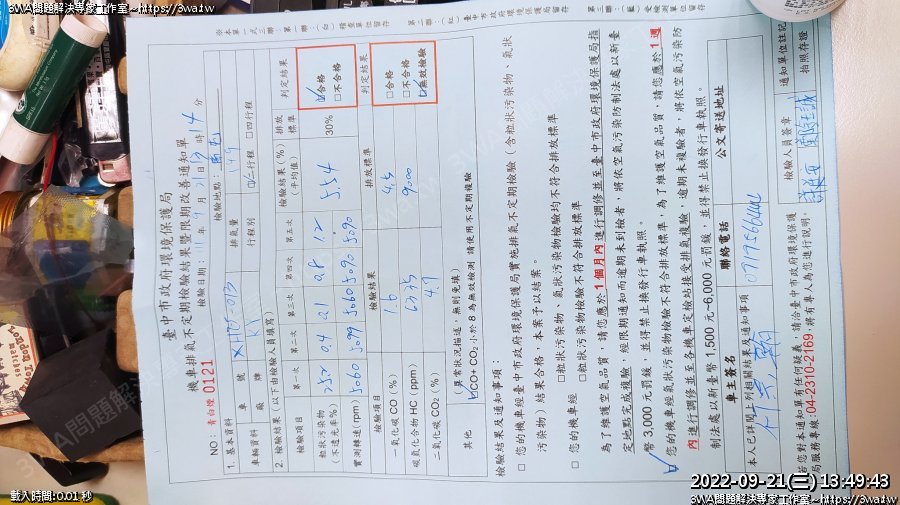 3WA問題解決專家工作室~https://3wa.tw
3WA問題解決專家工作室~https://3wa.tw
臺中市政府環境保護局
機車排氣不定期檢驗結果暨限期改善通知單
NO：青白煙 0121
檢驗日期：111年9月21日13時14分
1.基本資料
車輛資料
車號
廠牌
排氣量
行程別
二行程 □四行程
2.檢驗結果（以下由檢驗人員填寫）
檢驗項目 第二次 第三次 第四次 第五次 檢驗結果(%)(平均值) 排放標準 判定結果
粒狀污染物(不透光率%) 252 0.4 2.1 0.8 1.2 5.54 30% 合格 □不合格
實測轉速(rpm) 5060 5099 5060 5090 5090
檢驗項目 檢驗結果 排放標準 判定結果
一氧化碳CO(%) 1.6 4.5 □合格
碳氫化合物HC(ppm) 6335 9000 □不合格
二氧化碳CO₂(%) 4.7 無效檢驗
其他 （異常狀況描述，無則免填）
CO+CO₂小於8為無效檢測 請使用不定期複驗
檢驗結果及通知事項：
□您的機車經臺中市政府環境保護局實施排氣不定期檢驗（含粒狀污染物、氣狀污染物）結果合格，本案予以結案。
□您的機車經
□粒狀污染物、氣狀污染物檢驗均不符合排放標準
□粒狀污染物檢驗不符合排放標準
為了維護空氣品質，請您應於1個月內進行調修並至臺中市政府環境保護局指定地點完成複驗，經限期通知而逾期未到檢者，將依空氣污染防制法處以新臺幣3,000元罰鍰，並得禁止換發行車執照。
您的機車經氣狀污染物檢驗不符合排放標準，為了維護空氣品質，請您應於1週內進行調修並至各機車定檢站接受排氣複驗，逾期未複驗者，將依空氣污染防制法處以新臺幣1,500元~6,000元罰鍰，並得禁止換發行車執照。
車主簽名 聯絡電話 公文寄送地址
本人已詳閱下列相關結果及通知事項
檢驗人員簽章 通知單位註記
拍照存證
若您對本通知單有任何疑義，請洽臺中市政府環境保護局服務專線:04-2310-2169，將有專人為您進行說明。
2022-09-21(三) 13:49:43
載入時間:0.01 秒
3WA問題解決專家工作室~https://3wa.tw